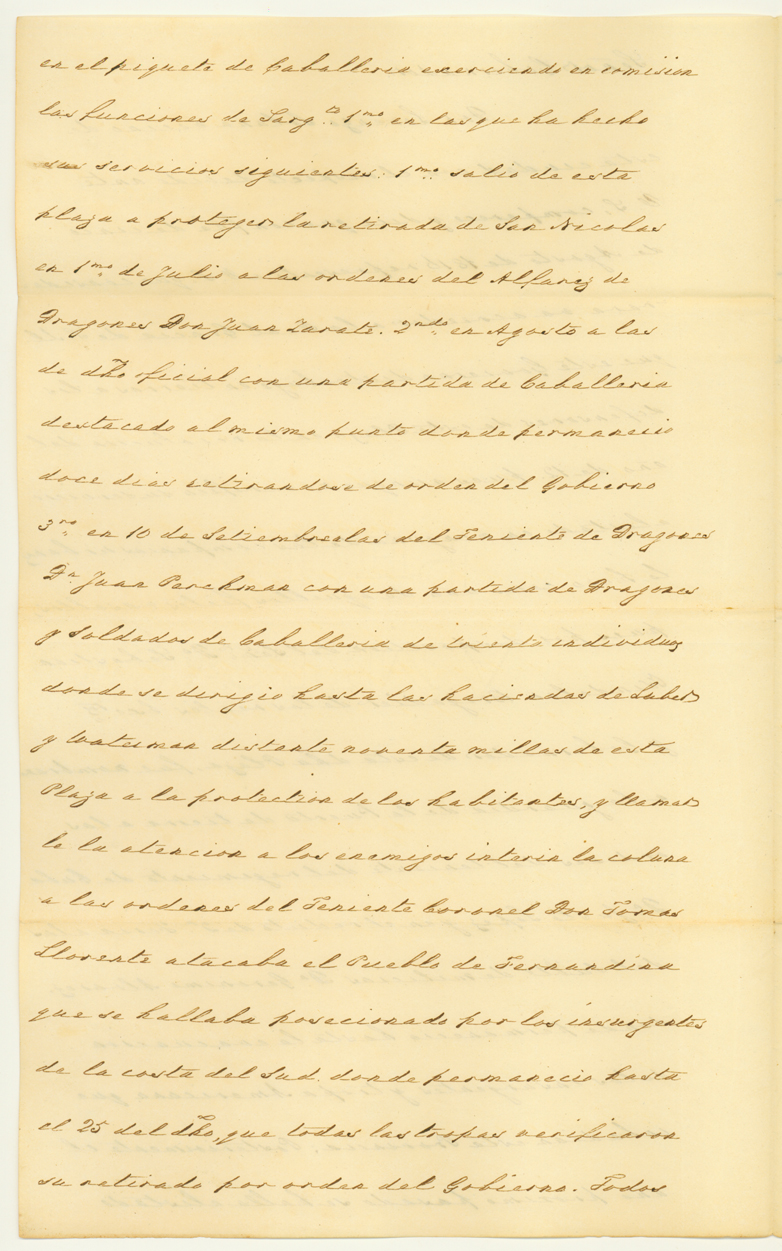 en el piquete de Caballeria exerciendo en comision
las funciones de Sargto 1mo en las que ha hecho
sus servicios siguientes: 1mo salio de esta
plaza a proteger la retirada de San Nicolas
en 1mo de Julio a las ordenes del Alfarez de
Dragones Don Juan Zarate. 2ndo en Agosto a las
de dho oficial con una partida de Caballeria
destacado al mismo punto donde permanecio
doce dias retirandose de orden del Gobierno
3ro en 10 de Setiembre elas del Teniente de Dragones
Dn Juan Perchman con una partida de Dragones
y Soldados de Caballeria de triento individuos
donde se dirigio hasta las haciendas de
y distante noventa millas de esta
Plaza a la protection de los habitantes, y llamar
le la atencion a los enemigos interin la coluna
a las ordenes del Teniente Coronel Don Tomas
Llorente atacaba el Pueblo de Fernandina
que se hallaba posecionado por los insurgentes
de la costa del Sud. donde permanecio hasta
el 25 del dho, que todas las tropas verificaron
su retirado por orden del Gobierno. Todos